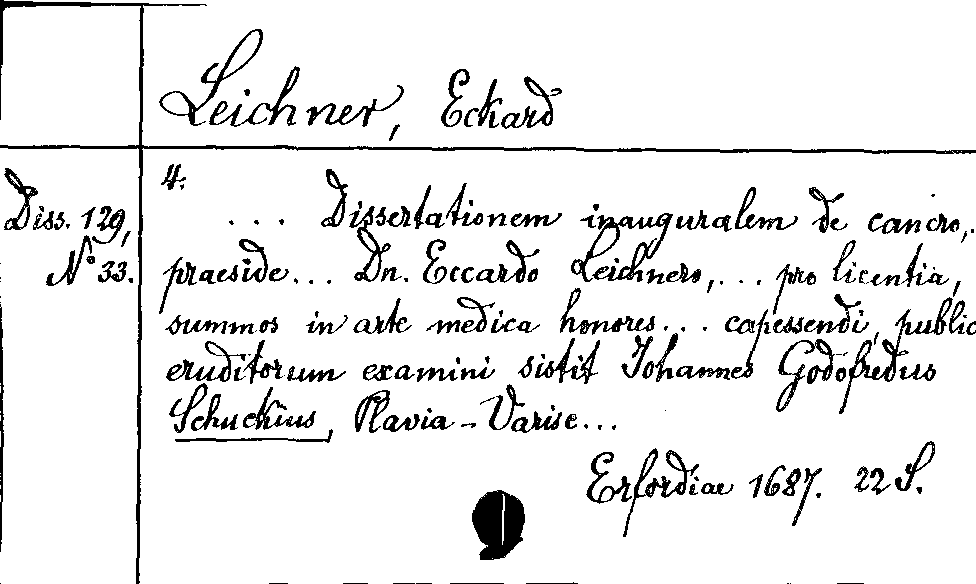 Leichner, Eckard
4.
Diss. 129, ... Dissertationem inauguralem de cancro,
No 33. praeside... Dn. Eccardo Leichnero,... pro licentia,
summos in arte medica honores... capessendi, public
eruditorum examini sistit Johannes Godofredus
Schuckius, Plavia-Varisc...
Erfordiae 1687. 22 S.